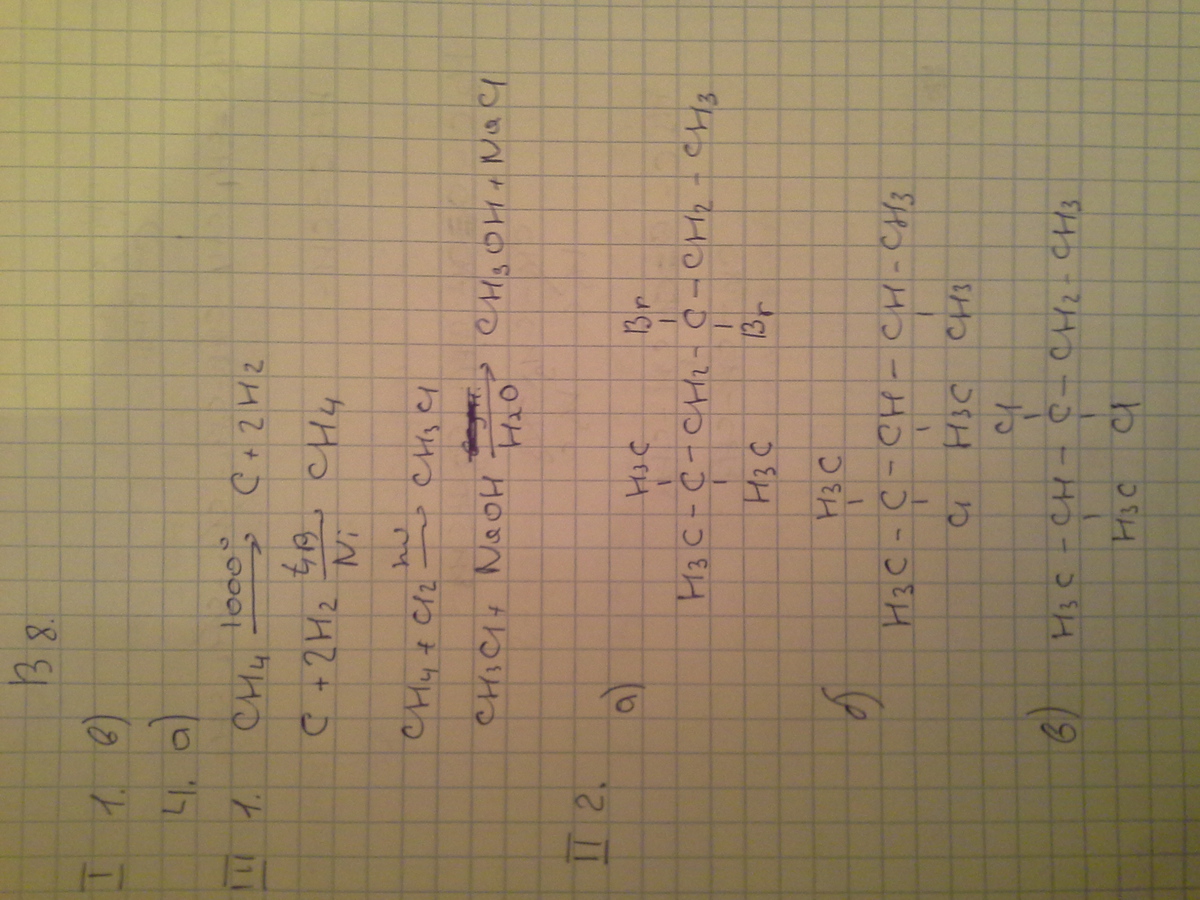 В 8.
I 1. в)
4. а)
III 1. CH4 1000° → C + 2H2
C + 2H2 t,p → Ni CH4
CH4 + Cl2 hν → CH3Cl
CH3Cl + NaOH → H2O CH3OH + NaCl
II 2.
а)
H3C Br
H3C - C - CH2 - C - CH2 - CH3
H3C Br
б)
H3C
H3C - C - CH - CH - CH3
Cl H3C CH3
в)
Cl
H3C - CH - C - CH2 - CH3
H3C Cl